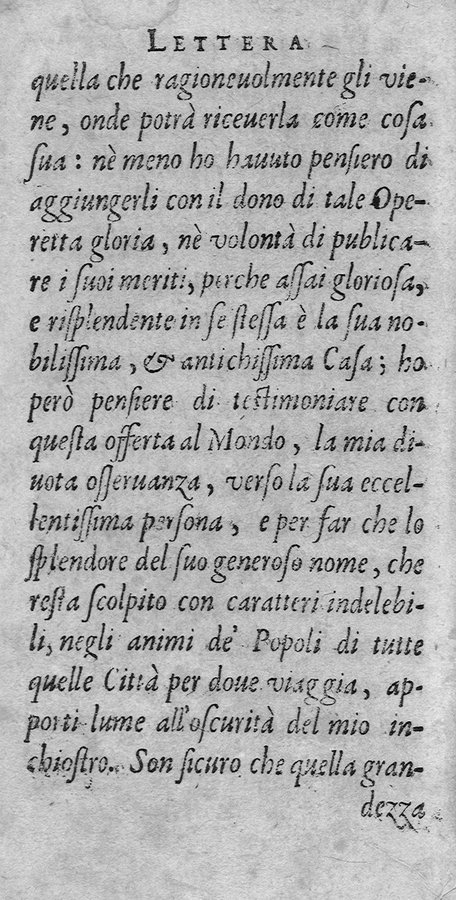 LETTERA
quella che ragioneuolmente gli vie-
ne, onde potrà riceuerla come cosa
sua: nè meno ho hauuto pensiero di
aggiungerli con il dono di tale Ope-
retta gloria, nè volontà di publica-
re i suoi meriti, perche assai gloriosa,
e risplendente in se stessa è la sua no-
bilissima, & antichissima Casa; ho
però pensiere di testimoniare con
questa offerta al Mondo, la mia di-
uota osseruanza, verso la sua eccel-
lentissima persona, e per far che lo
splendore del suo generoso nome, che
resta scolpito con caratteri indelebi-
li, negli animi de' Popoli di tutte
quelle Città per doue viaggia, ap-
porti lume all'oscurità del mio in-
chiostro. Son sicuro che quella gran-
dezza